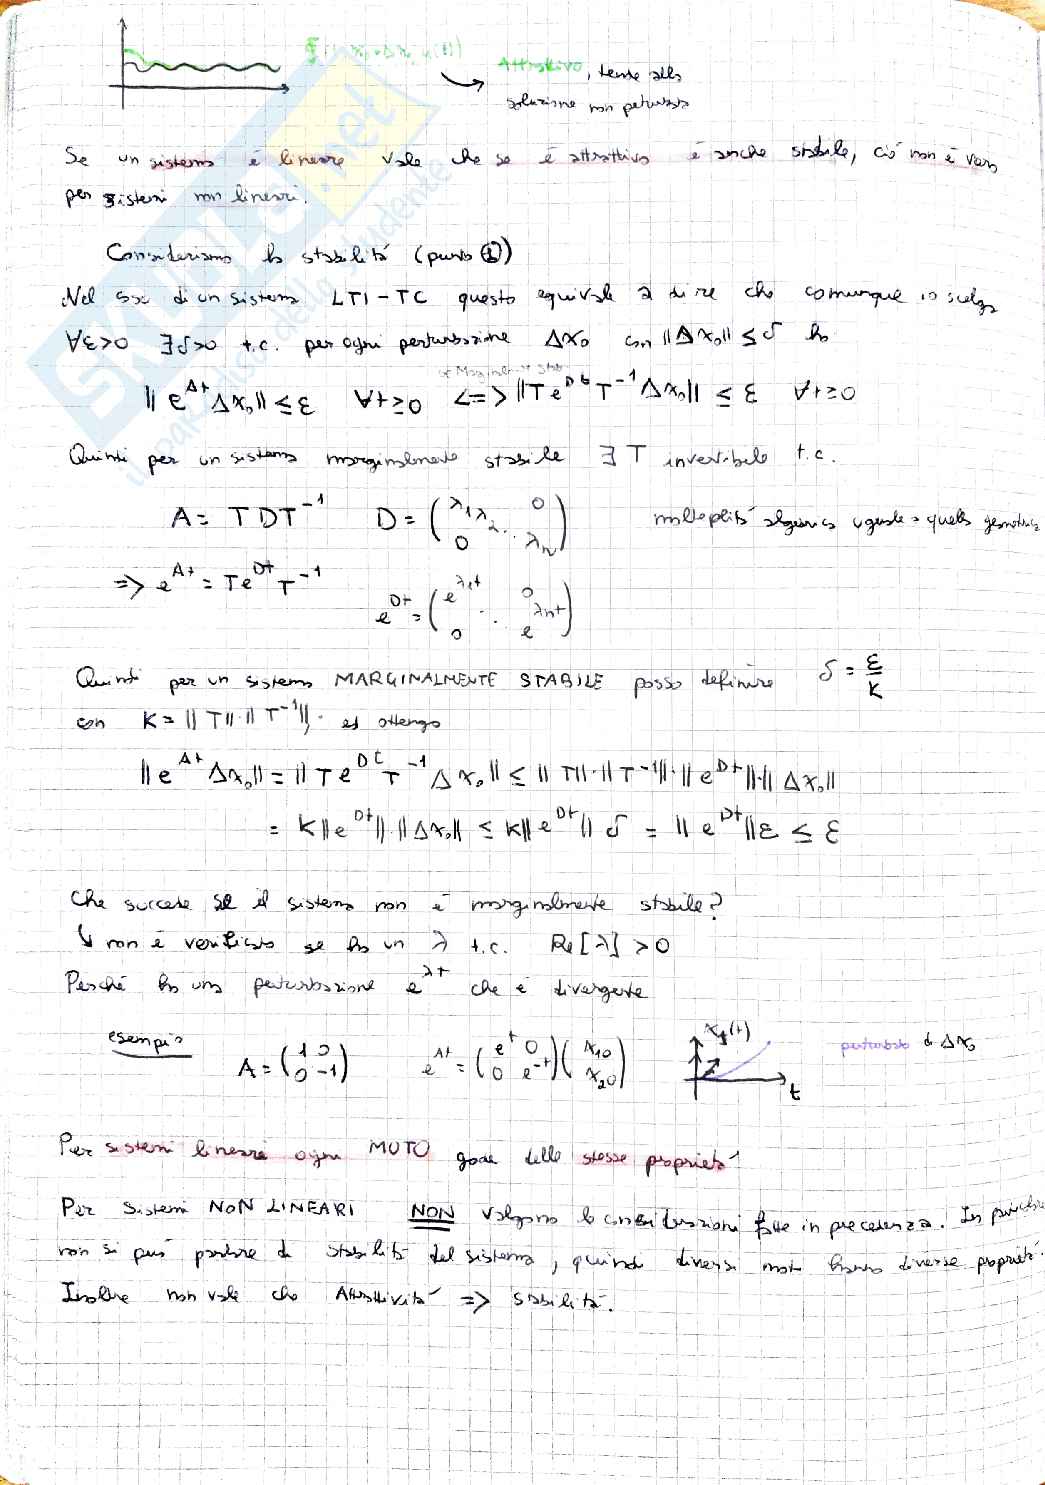 Attrattivo, tende alla
soluzione non perturbata
Se un sistema é lineare vale che se é attrattivo é anche stabile, ció non é vero
per sistemi non lineari.
Consideriamo la stabilitá (punto ①)
Nel caso di un sistema LTI-TC questo equivale a dire che comunque io scelga
∀ε>0 ∃δ>0 t.c. per ogni perturbazione Δx₀ con ||Δx₀|| ≤ δ ho
||e^{At} Δx₀|| ≤ ε ∀t≥0 <=> ||T e^{Dt} T^{-1} Δx₀|| ≤ ε ∀t≥0
Quindi per un sistema marginalmente stabile ∃ T invertibile t.c.
A = TDT^{-1} D = (λ₁ λ₂ ... λₙ 0 0) molteplicitá algebrica uguale a quella geometrica
=> e^{At} = T e^{Dt} T^{-1}
e^{Dt} = (e^{λ₁t} 0 ... 0 e^{λₙt})
Quindi per un sistema MARGINALMENTE STABILE posso definire δ = ε/K
con K = ||T||·||T^{-1}||, ed ottengo
||e^{At} Δx₀|| = ||T e^{Dt} T^{-1} Δx₀|| ≤ ||T||·||T^{-1}||·||e^{Dt}||·||Δx₀||
= K||e^{Dt}||·||Δx₀|| ≤ K||e^{Dt}|| δ = ||e^{Dt}||ε ≤ ε
Che succede se il sistema non é marginalmente stabile?
↳ non é verificato se ho un λ t.c. Re[λ] > 0
Perché ho una perturbazione e^{λt} che é divergente
esempio
A = (1 0 0 -1) e^{At} = (e^t 0 0 e^{-t})(x₁₀ x₂₀) x₁(t) t perturbato di Δx₀
Per sistemi lineari ogni MOTO gode delle stesse proprietá
Per sistemi NON LINEARI NON valgono le considerazioni fatte in precedenza. In particolare
non si puó parlare di stabilitá del sistema, quindi diversi moti hanno diverse proprietá.
Inoltre non vale che Attrattivitá => stabilitá.
SKUOLA.net
il paradiso dello studente